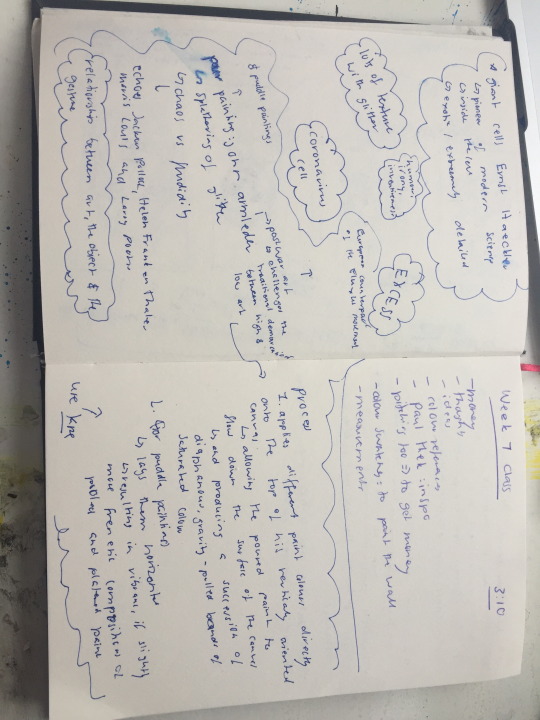 giant cells Ernst Haeckel
↳ pioneer of modern science
↳ inside the cell
↳ exotic / extremely detailed
lots of texture
with glitter
humour,
irony,
inventiveness
coronavirus
cell
EXCESS
European counterpart
of the fluxus movement
& puddle paintings
pour paintings: john armleder
↳ splattering of glitter
↳ chaos vs fluidity
→ postwar art
↳ challenges the
traditional demarcation
between high &
low art
echoes Jackson Pollock, Helen Frankenthaler,
Morris Louis and Larry Poons
relationship between art, the object & the
gesture
Week 7 Class
3:10
- money
- thoughts
- ideas
- colour references
- paul thek: inspo
- pitching too => to get money
- colour swatches: to paint the wall
- measurements
Process
1. applies different paint colours directly
onto the top of his vertically oriented
canvas:
↳ allowing the poured paint to
flow down the surface of the canvas
↳ and producing a succession of
diaphanous, gravity-pulled bands of
saturated colour
2. for puddle paintings
↳ lays them horizontal
↳ resulting in vibrant, if slightly
more frenetic compositions of
puddled and splattered paint